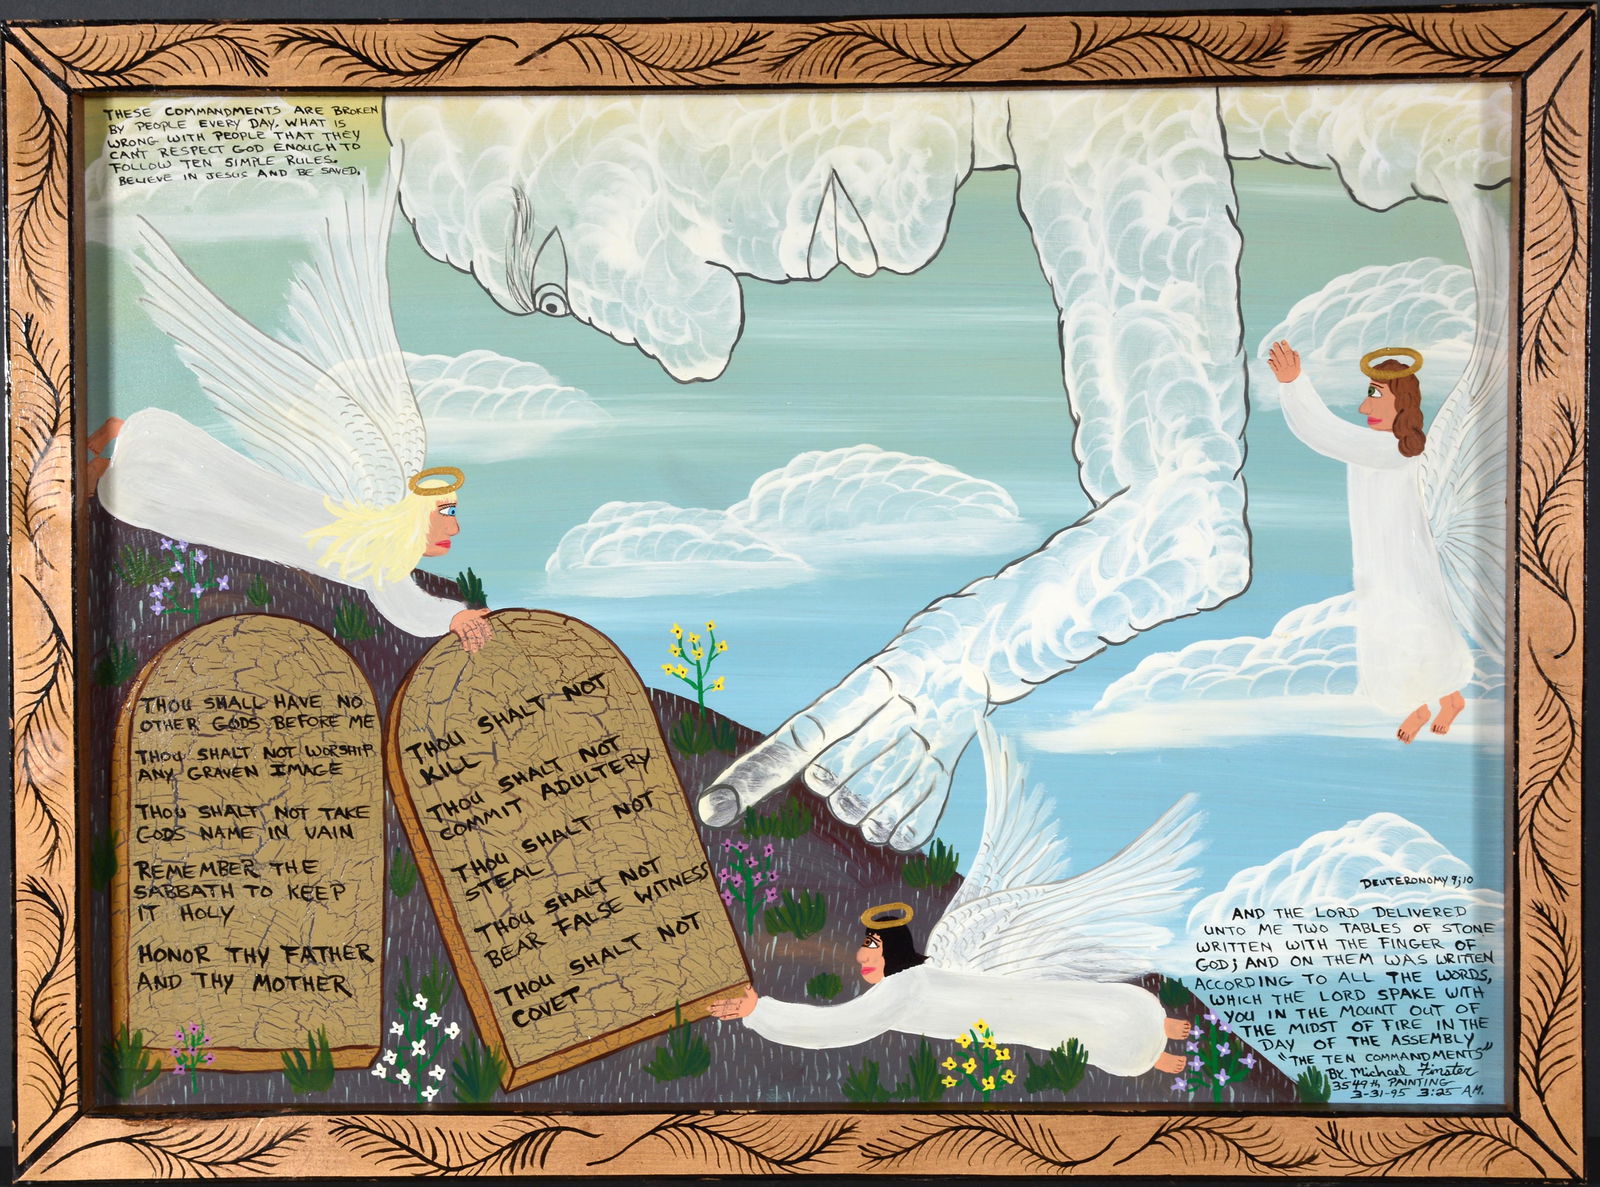 THESE COMMANDMENTS ARE BROKEN
BY PEOPLE EVERY DAY. WHAT IS
WRONG WITH PEOPLE THAT THEY
CANT RESPECT GOD ENOUGH TO
FOLLOW TEN SIMPLE RULES.
BELIEVE IN JESUS AND BE SAVED.
THOU SHALL HAVE NO
OTHER GODS BEFORE ME
THOU SHALT NOT WORSHIP
ANY GRAVEN IMAGE
THOU SHALT NOT TAKE
GODS NAME IN VAIN
REMEMBER THE
SABBATH TO KEEP
IT HOLY
HONOR THY FATHER
AND THY MOTHER
THOU SHALT NOT
KILL
THOU SHALT NOT
COMMIT ADULTERY
THOU SHALT NOT
STEAL
THOU SHALT NOT
BEAR FALSE WITNESS
THOU SHALT NOT
COVET
DEUTERONOMY 9;10
AND THE LORD DELIVERED
UNTO ME TWO TABLES OF STONE
WRITTEN WITH THE FINGER OF
GOD; AND ON THEM WAS WRITTEN
ACCORDING TO ALL THE WORDS,
WHICH THE LORD SPAKE WITH
YOU IN THE MOUNT OUT OF
THE MIDST OF FIRE IN THE
DAY OF THE ASSEMBLY
"THE TEN COMMANDMENTS"
By. Michael Finster
3549th PAINTING
3-31-95 3:25 A.M.